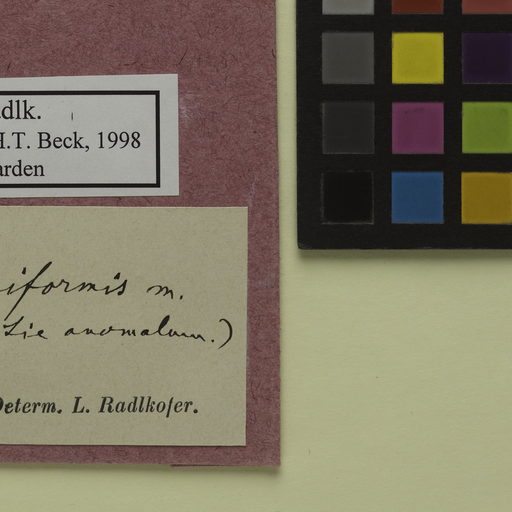 dlk.
H.T. Beck, 1998
arden
iformis m.
anomalum.)
Determ. L. Radlkofer.